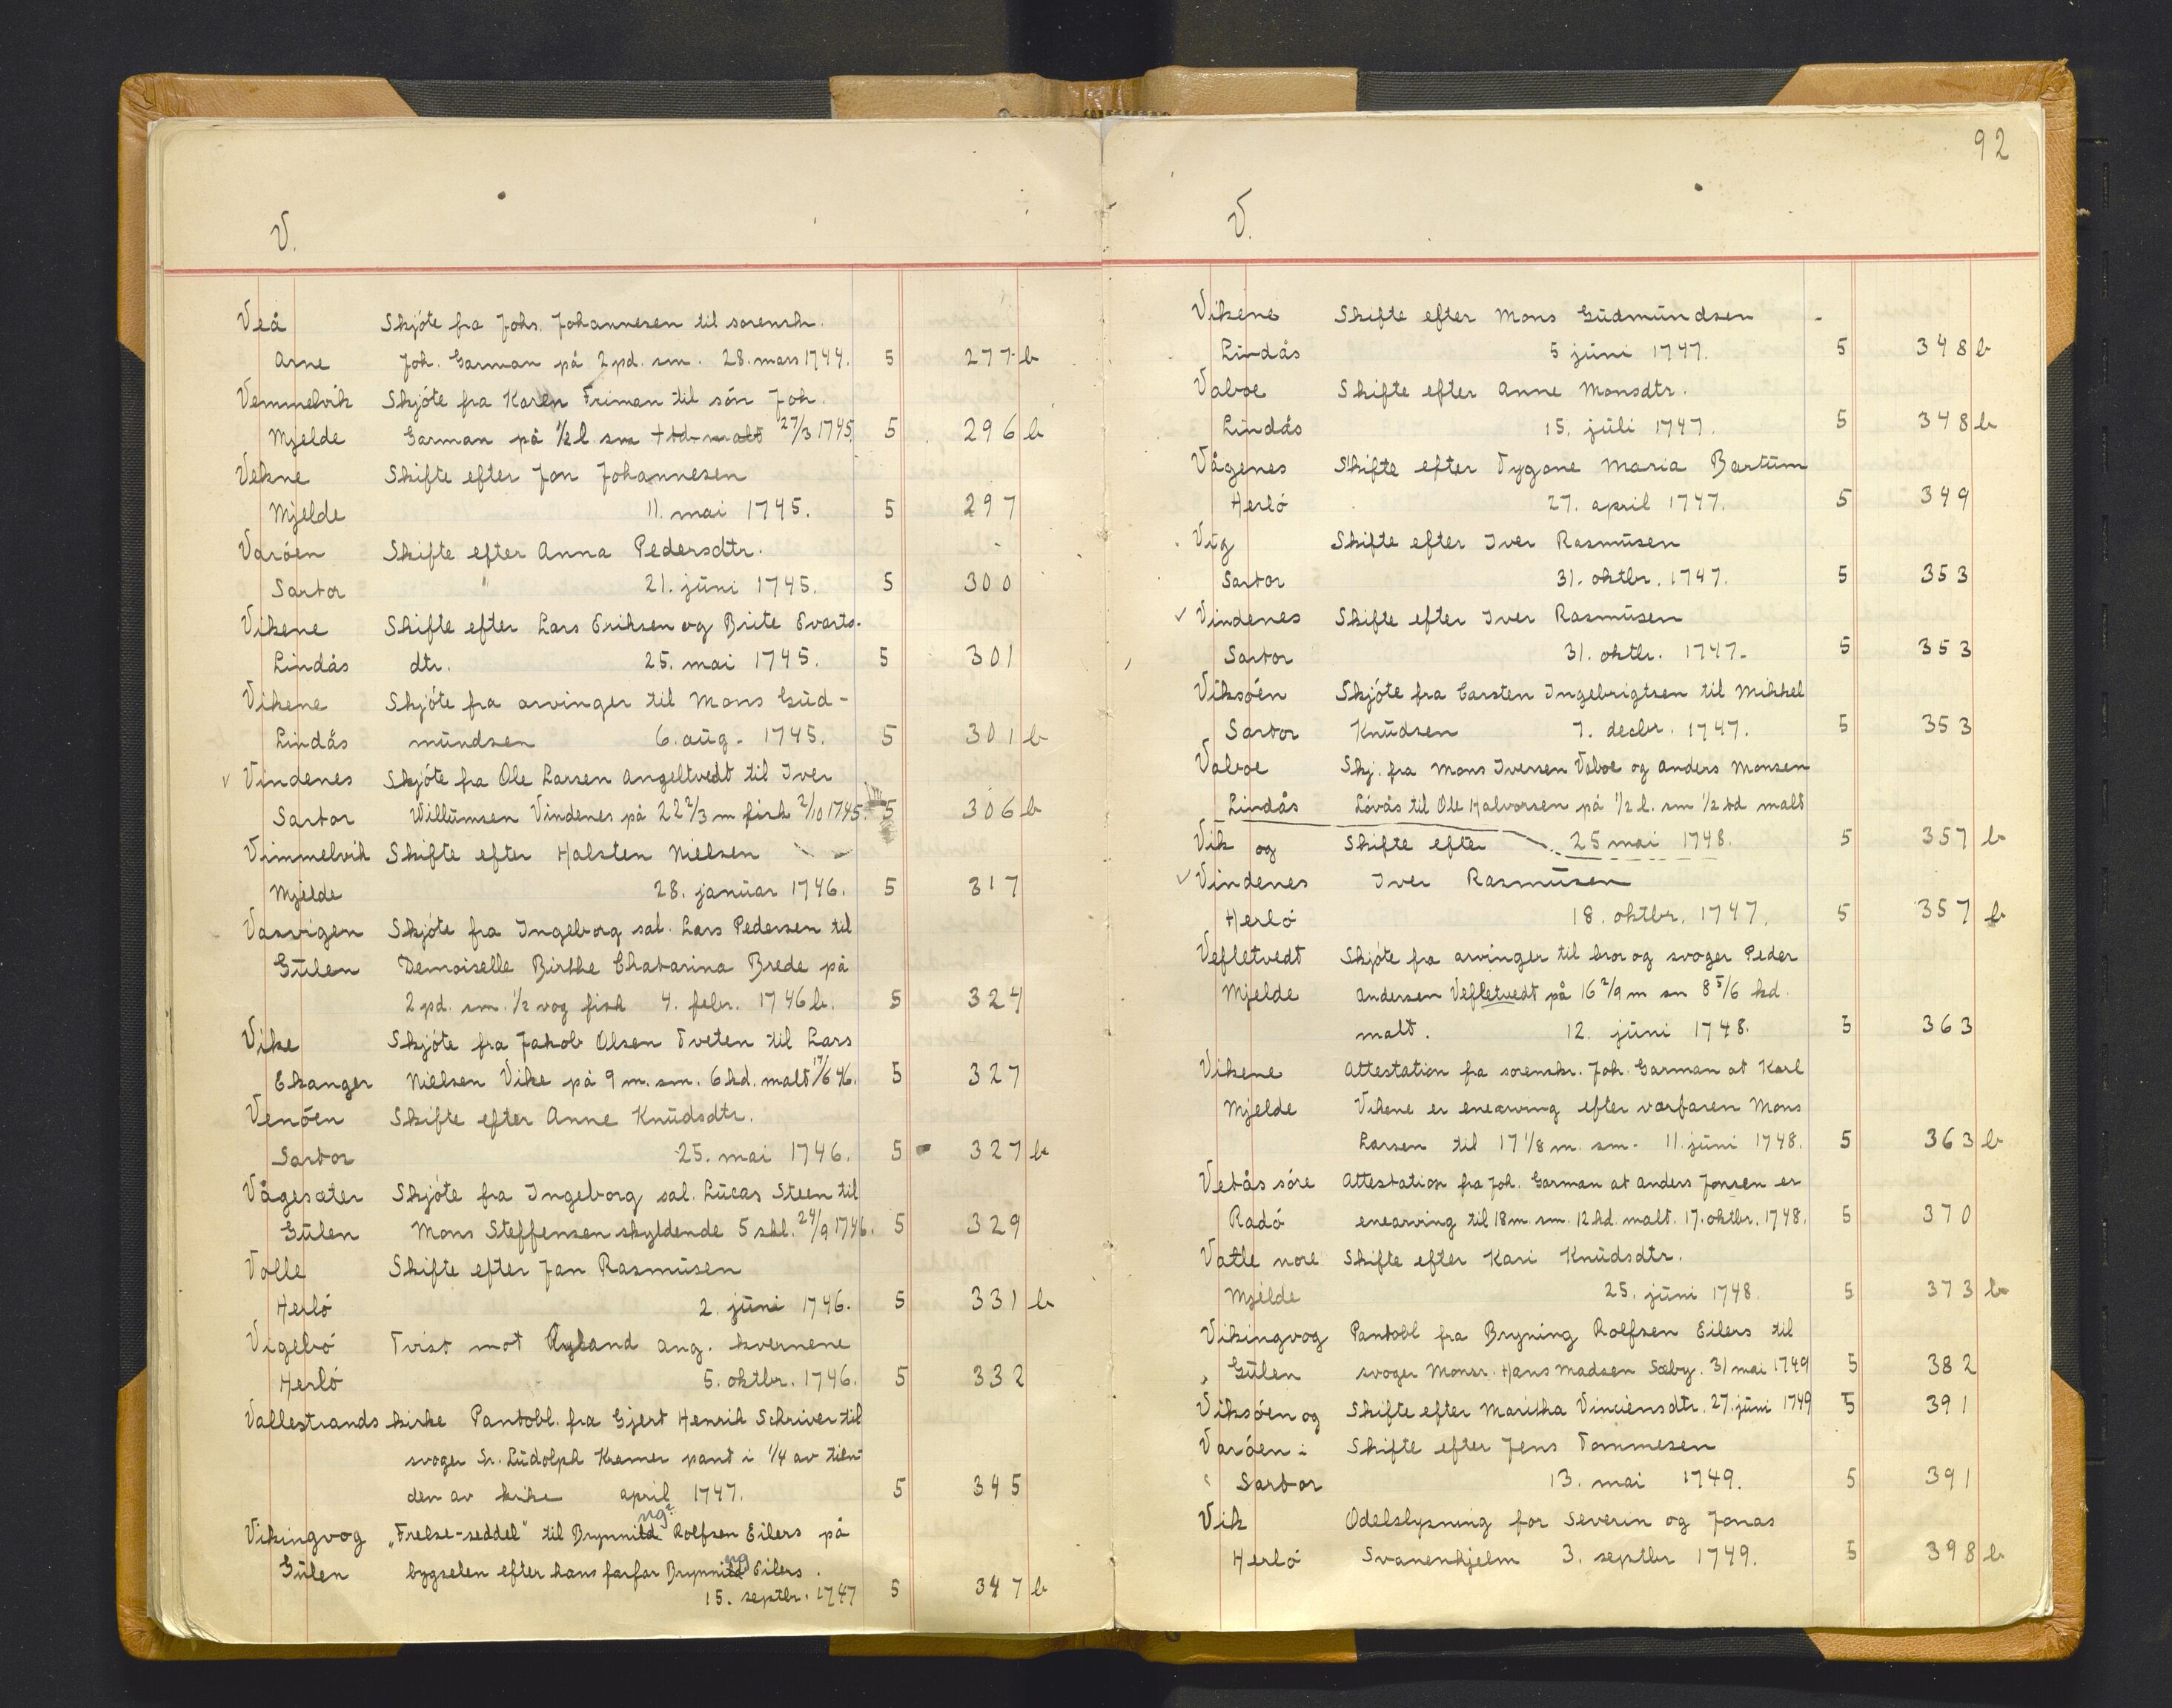 V.
Veå Skjöte fra Johs. Johannesen til sorensk.
Arne Joh. Garman på 2 pd. sm. 28. mars 1744. 5 277 b
Vemmelvik Skjöte fra Karen Friman til sön Joh.
Mjelde Garman på ½ l. sm + td malt 27/3 1745. 5 296 b
Vekne Skifte efter Jon Johannesen
Mjelde 11. mai 1745. 5 297
Varöen Skifte efter Anna Pedersdtr.
Sartor " 21. jūni 1745. 5 300
Vikene Skifte efter Lars Eriksen og Brite Evarts-
Lindås dtr. 25. mai 1745. 5 301
Vikene Skjöte fra arvinger til Mons Gūd-
Lindås mūndsen 6. aūg. 1745. 5 301 b
✓ Vindenes Skjöte fra Ole Larsen Angeltvedt til Iver
Sartor Willūmsen Vindenes på 22 2/3 m fisk 2/10 1745. 5 306 b
Vimmelvik Skifte efter Halsten Nielsen
Mjelde 28. janūar 1746. 5 317
Vasvigen Skjöte fra Ingeborg sal. Lars Pedersen til
Gūlen Demoiselle Birthe Chatarina Brede på
2 pd. sm. ½ vog fisk 4. febr. 1746 b. 5 324
Vike Skjöte fra Jakob Olsen Tveten til Lars
Ekanger Nielsen Vike på 9 m. sm. 6 kd. malt 17/6 46. 5 327
Venöen Skifte efter Anne Knūdsdtr.
Sartor 25. mai 1746. 5 327 b
Vågesæter Skjöte fra Ingeborg sal. Lūcas Steen til
Gūlen Mons Steffensen skyldende 5 skl. 24/9 1746. 5 329
Valle Skifte efter Jan Rasmūsen
Herlö 2. jūni 1746. 5 331 b
Vigebö Tvist mot Ryland ang. kvernene
Herlö 5. oktbr. 1746. 5 332
Vallestrands kirke Pantobl. fra Gjert Henrik Schriver til
svoger Sr. Lūdolph Kramer pant i 1/4 av tien-
den av kirke april 1747. 5 345
Vikingvog „Frelse-seddel" til Brynnild ng Rolfsen Eilers på
Gūlen bygselen efter hans farfar Brynnild ng Eilers.
15. septbr. 1747 5 347 b
92
V.
Vikene Skifte efter Mons Gūdmūndsen
Lindås 5 jūni 1747. 5 348 b
Vaboe Skifte efter Anne Monsdtr.
Lindås 15. jūli 1747. 5 348 b
Vågenes Skifte efter Tygone Maria Bartūm
Herlö 27. april 1747. 5 349
Vig Skifte efter Iver Rasmūsen
Sartor 31. oktbr. 1747. 5 353
✓ Vindenes Skifte efter Iver Rasmūsen
Sartor 31. oktbr. 1747. 5 353
Viksöen Skjöte fra Carsten Ingebrigtsen til Mikkel
Sartor Knūdsen 7. decbr. 1747. 5 353
Vaboe Skj. fra Mons Iversen Vaboe og Anders Monsen
Lindås Lövås til Ole Halvorsen på ½ l. sm ½ td malt
Vik og Skifte efter 25 mai 1748. 5 357 b
✓ Vindenes Iver Rasmūsen
Herlö 18. oktbr. 1747. 5 357 b
Vefletvedt Skjöte fra arvinger til bror og svoger Peder
Mjelde Andersen Vefletvedt på 16 2/9 m sm 8 5/6 kd.
malt. 12. jūni 1748. 5 363
Vikene Attestation fra sorenskr. Joh. Garman at Karl
Mjelde Vikene er enearving efter varfaren Mons
Larsen til 17 1/8 m. sm. 11. jūni 1748. 5 363 b
Vetås söre Attestation fra Joh. Garman at Anders Jonsen er
Radö enearving til 18 m. sm. 12 kd. malt. 17. oktbr. 1748. 5 370
Vatle nore Skifte efter Kari Knūdsdtr.
Mjelde 25. jūni 1748. 5 373 b
Vikingvog Pantobl fra Bryning Rolfsen Eilers til
Gūlen svoger Monsr. Hans Madsen Sæby. 31 mai 1749 5 382
Viksöen og Skifte efter Maritha Vinciensdtr. 27. jūni 1749 5 391
Varöen i Skifte efter Jens Tommesen
Sartor 13. mai 1749. 5 391
Vik Odelslysning for Severin og Jonas
Herlö Svanenhjelm 3. septbr 1749. 5 398 b